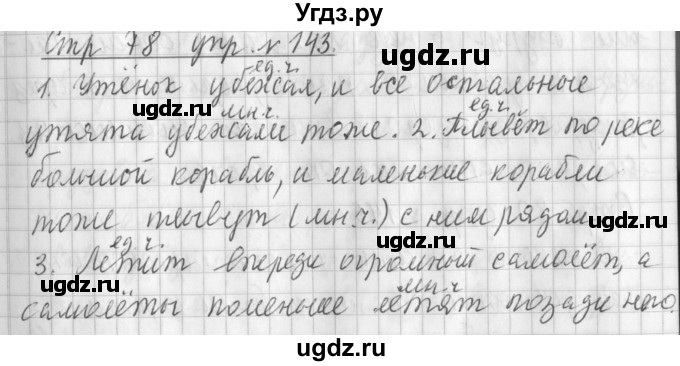 Угдз.ру
Стр 78 упр. №143.
ед.ч.
1. Утёнок убежал, и все остальные
мн.ч. ед.ч.
утята убежали тоже. 2. Плывёт по реке
большой корабль, и маленькие корабли
тоже плывут (мн.ч.) с ним рядом.
ед.ч.
3. Летит впереди огромный самолёт, а
мн.ч
самолёты поменьше летят позади него.
ugdz.ru ugdz.ru ugdz.ru
ugdz.ru ugdz.ru
ugdz.ru ugdz.ru ugdz.ru
ugdz.ru ugdz.ru
ugdz.ru